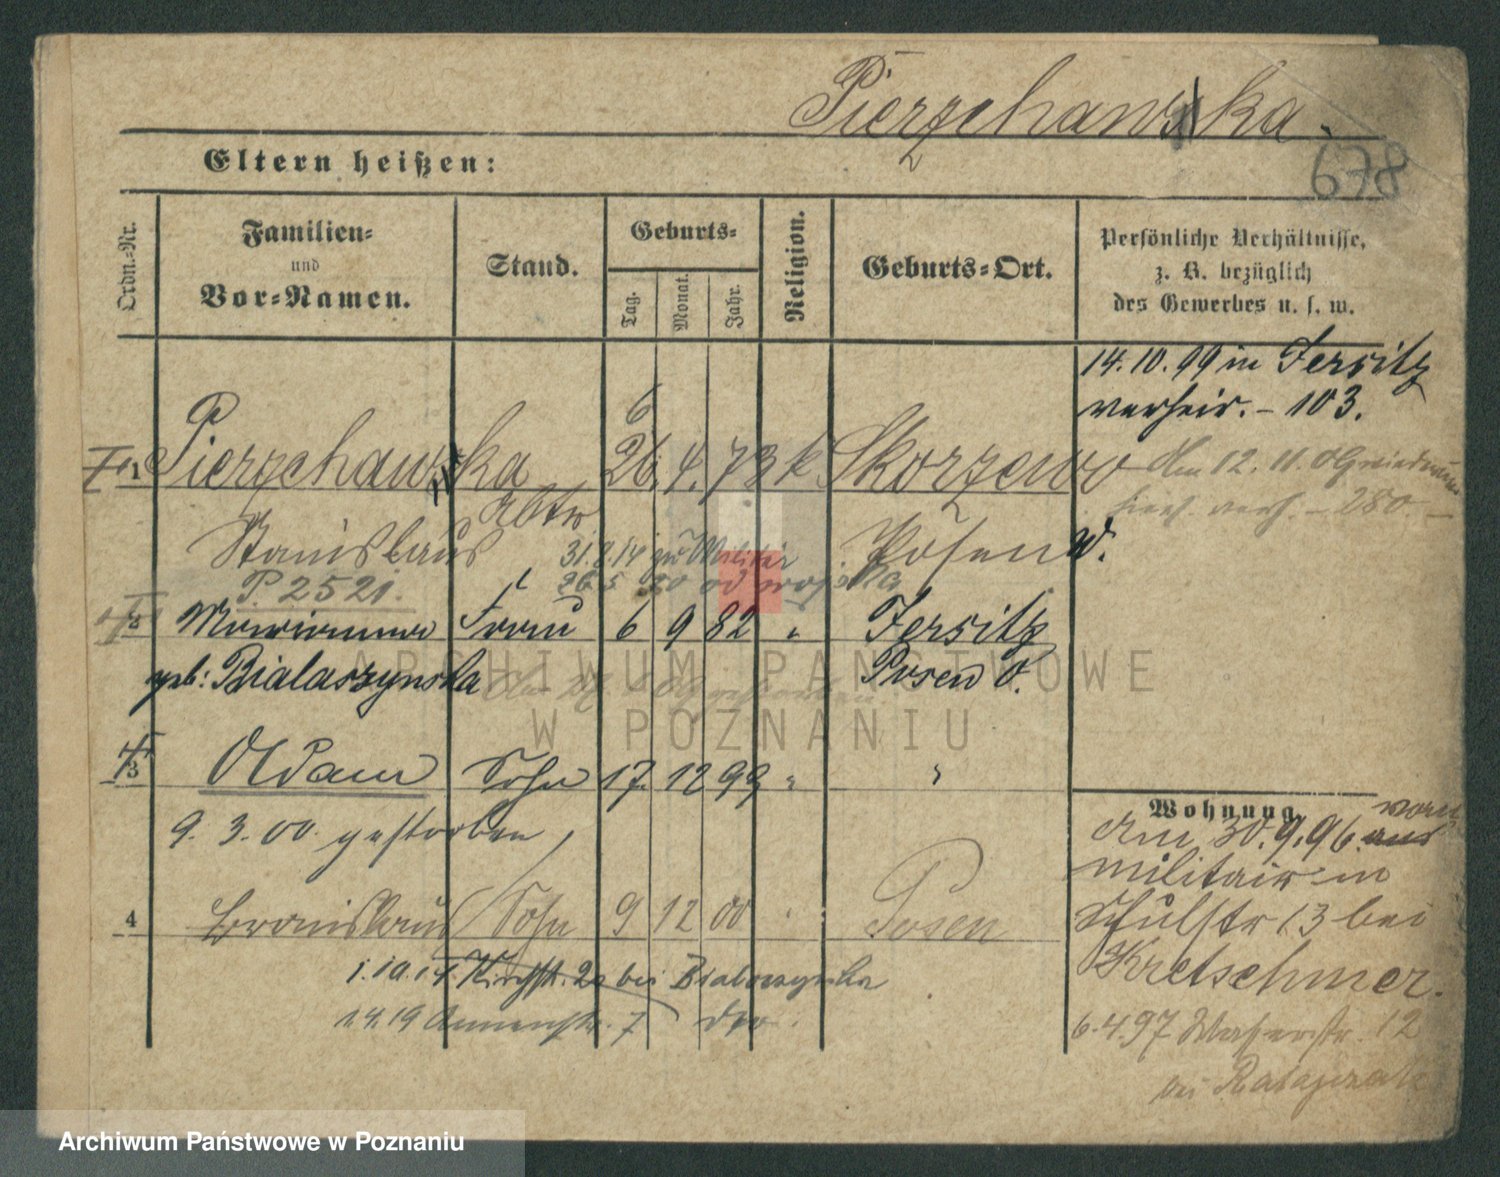 Pierzchawska.
678
Eltern heißen:
Ordn.-Nr.
Familien-
und
Vor-Namen.
Stand.
Geburts-
Tag.
Monat.
Jahr.
Religion.
Geburts-Ort.
Persönliche Verhältnisse,
z. B. bezüglich
des Gewerbes u. s. w.
14. 10. 99 in Jersitz
verheir. - 103.
1 Pierzchawska 26. 4. 73 k Skorzewo
6
den 12. 11.
verh. - 280 -
Stanislaus Posen W.
31. 8. 14 zu Militär
P 2521.
2 Marianna Frau 6 9 82 " Jersitz
geb: Bialaszynska Posen O.
ARCHIWUM PAŃSTWOWE
W POZNANIU
3 Adam Sohn 17. 12 99 " "
9. 3. 00. gestorben
Wohnung
am 30. 9. 96. vom
militair in
Schulstr 13 bei
Kretschmer.
4 Bronislaus Sohn 9 12 00 " Posen
1. 10. 14 Kirchstr. 2a bei Bialoszynska
1. 4. 19 Annenstr. 7 dto.
6. 4. 97 Wasserstr. 12
bei Ratajczak
Archiwum Państwowe w Poznaniu